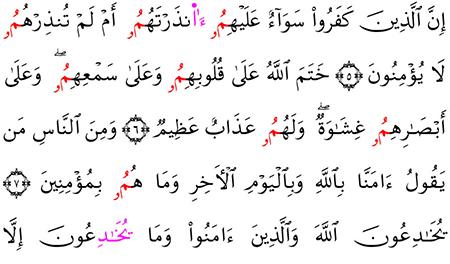 إِنَّ ٱلَّذِينَ كَفَرُوا۟ سَوَآءٌ عَلَيْهِمُۥ ءَا۬نذَرْتَهُمُۥ أَمْ لَمْ تُنذِرْهُمُۥ
لَا يُؤْمِنُونَ ٥ خَتَمَ ٱللَّهُ عَلَىٰ قُلُوبِهِمُۥ وَعَلَىٰ سَمْعِهِمُۥۖ وَعَلَىٰ
أَبْصَٰرِهِمُۥ غِشَٰوَةٌۖ وَلَهُمُۥ عَذَابٌ عَظِيمٌ ٦ وَمِنَ ٱلنَّاسِ مَن
يَقُولُ ءَامَنَّا بِٱللَّهِ وَبِٱلْيَوْمِ ٱلْأَخِرِ وَمَا هُمُۥ بِمُؤْمِنِينَ ٧
يُخَٰدِعُونَ ٱللَّهَ وَٱلَّذِينَ ءَامَنُوا۟ وَمَا يُخَٰدِعُونَ إِلَّا